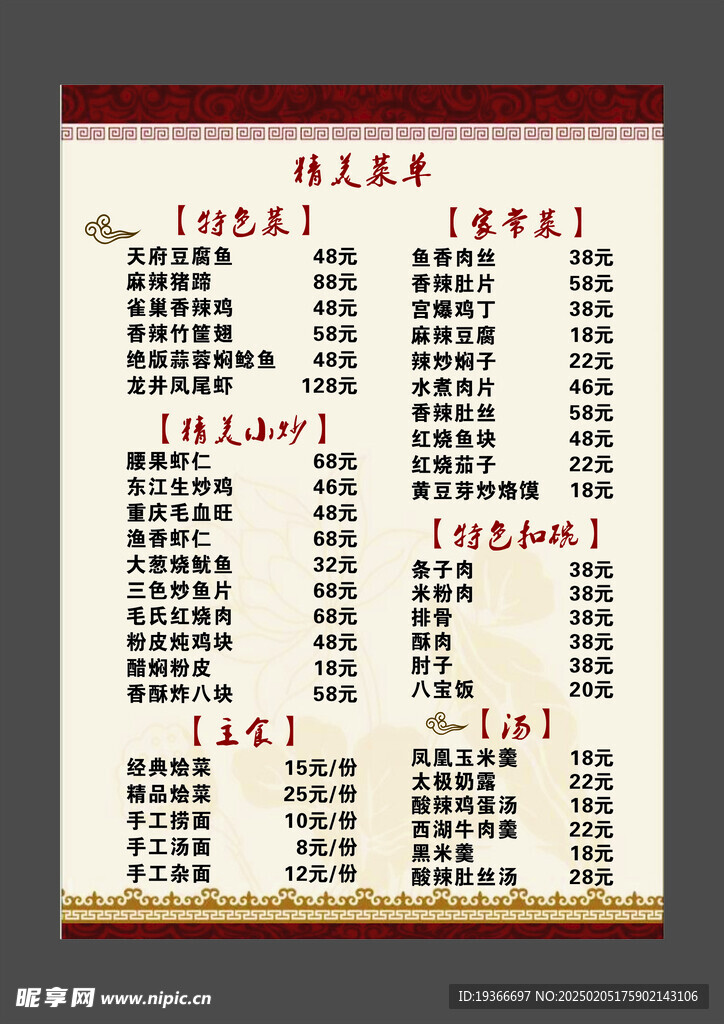 精美菜单
【特色菜】
天府豆腐鱼 48元
麻辣猪蹄 88元
雀巢香辣鸡 48元
香辣竹筐翅 58元
绝版蒜蓉焖鲶鱼 48元
龙井凤尾虾 128元
【精美小炒】
腰果虾仁 68元
东江生炒鸡 46元
重庆毛血旺 48元
渔香虾仁 68元
大葱烧鱿鱼 32元
三色炒鱼片 68元
毛氏红烧肉 68元
粉皮炖鸡块 48元
醋焖粉皮 18元
香酥炸八块 58元
【主食】
经典烩菜 15元/份
精品烩菜 25元/份
手工捞面 10元/份
手工汤面 8元/份
手工杂面 12元/份
【家常菜】
鱼香肉丝 38元
香辣肚片 58元
宫爆鸡丁 38元
麻辣豆腐 18元
辣炒焖子 22元
水煮肉片 46元
香辣肚丝 58元
红烧鱼块 48元
红烧茄子 22元
黄豆芽炒烙馍 18元
【特色扣碗】
条子肉 38元
米粉肉 38元
排骨 38元
酥肉 38元
肘子 38元
八宝饭 20元
【汤】
凤凰玉米羹 18元
太极奶露 22元
酸辣鸡蛋汤 18元
西湖牛肉羹 22元
黑米羹 18元
酸辣肚丝汤 28元
昵享网 www.nipic.cn
ID:19366697 NO:20250205175902143106